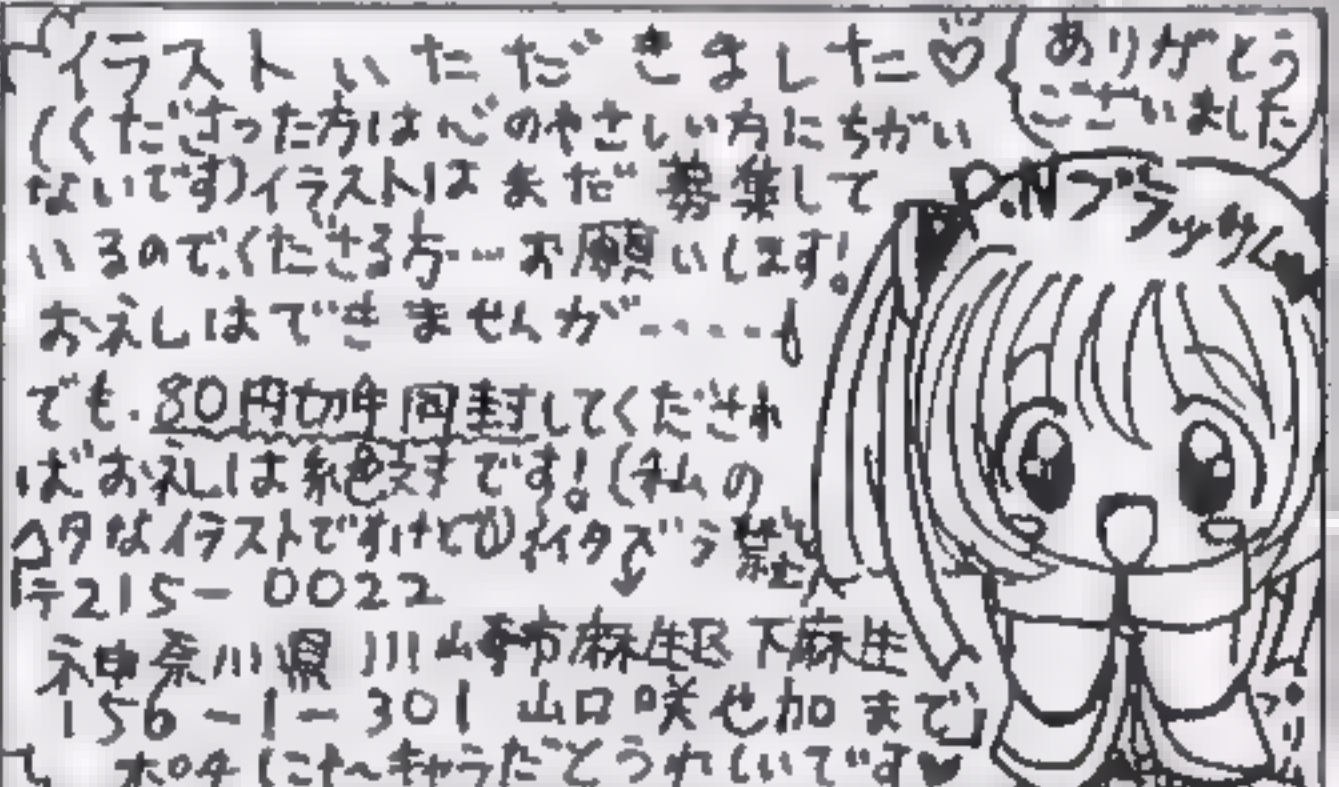 イラストいただきました♡
(くださった方は心のやさしい方にちがい
ないです)イラストはまだ募集して
いるのでくださる方……お願いします!
お返しはできませんが‥‥‥
でも、80円切手同封してくだされ
ばお返しは絶対です!(私の
ヘタなイラストですけど)イタズラ禁止
〒215-0022
神奈川県川崎市麻生区下麻生
156-1-301 山口咲也加まで
キャラだとうれしいです♥
ありがとう
ございました